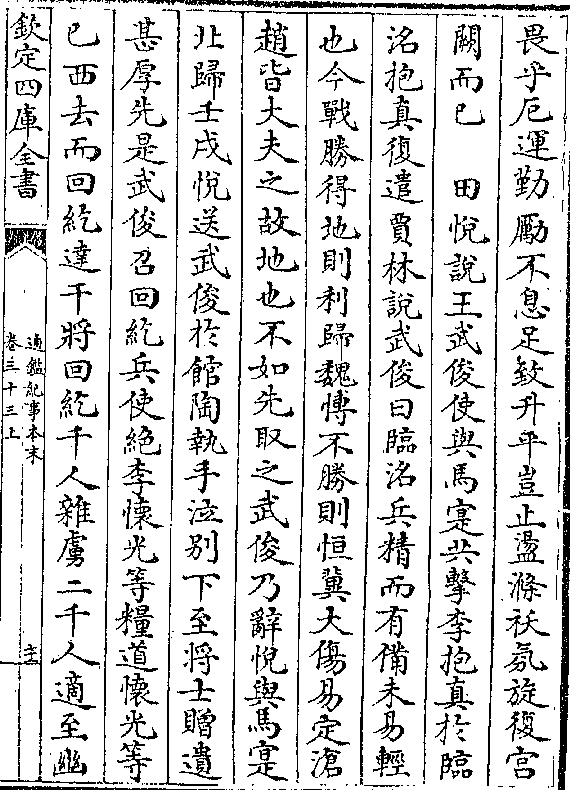 畏乎厄運勤勵不息足致升平豈止盪滌祅氛旋復宫
闕而已　田悅說王武俊使與馬寔共擊李抱真於臨
洺抱真復遣賈林說武俊曰臨洺兵精而有備未易輕
也今戰勝得地則利歸魏博不勝則恒冀大傷易定滄
趙皆大夫之故地也不如先取之武俊乃辭悅與馬寔
北歸壬戌悅送武俊於館陶執手泣别下至將士贈遺
甚厚先是武俊召回紇兵使絶李懷光等糧道懷光等
已西去而回紇達干將回紇千人雜虜二千人適至幽
欽定四庫全書
通鑑紀事本末
卷三十三上